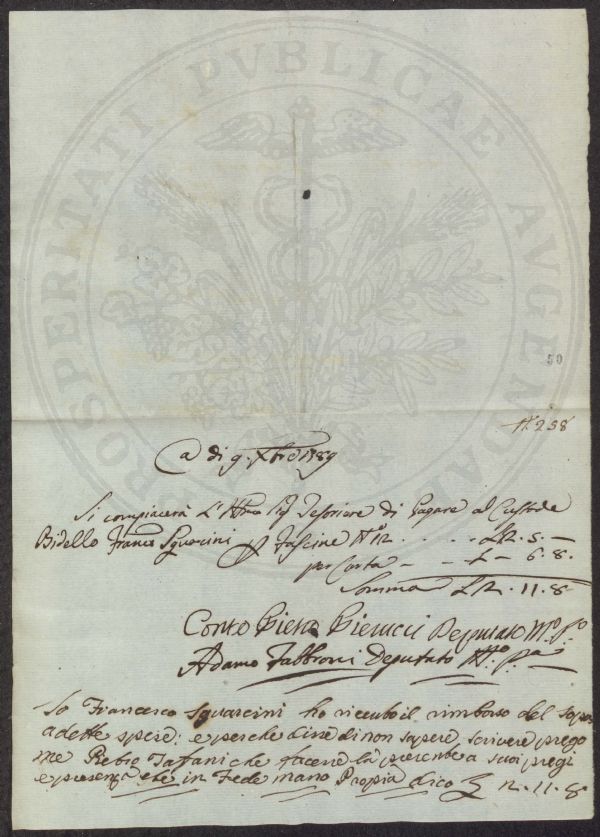 PROSPERITATI PVBLICAE AVGENDAE
50
N. 238
A di 9 Xbre 1789
Si compiacerà L'Illmo Sig Tesoriere di Pagare al Custode
Bidello Franco Sguarcini p Fascine No 12 . . . . . £ 2. 5. —
per Carta — — £ — 6. 8.
Somma £ 2. 11. 8
Conte Pietro Pierucci Deputato Mo. Po.
Adamo Fabbroni Deputato Mo. Pa
Io Francesco Sguarcini ho riceuto il rimborso del sopra
adette spese: e perche disse di non sapere scrivere prego
me Pietro Tafani che facene la presente a suoi pregi
e presenza che in Fede mano Propia dico £ 2. 11. 8